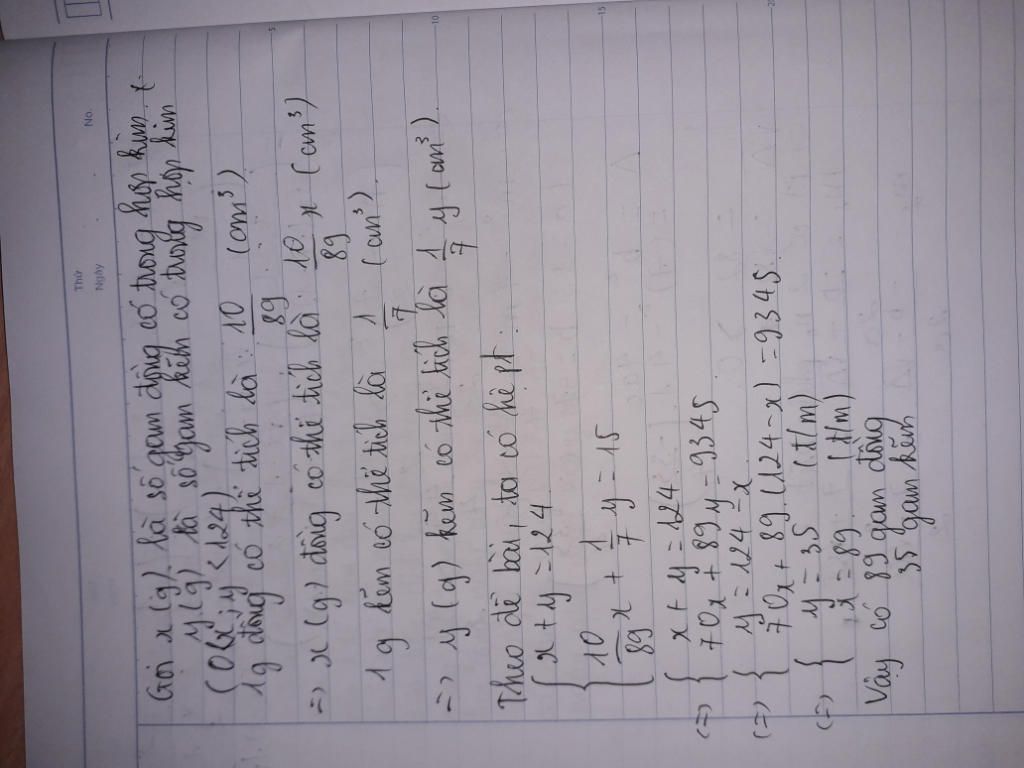 Thứ
Ngày
No.
5
10
15
20
Gọi x (g) là số gam đồng có trong hợp kim. (
y (g) là số gam kẽm có trong hợp kim
(0<x;y<124)
1g đồng có thể tích là: 10/89 (cm³)
=> x (g) đồng có thể tích là: 10/89 x (cm³)
1g kẽm có thể tích là 1/7 (cm³)
=> y (g) kẽm có thể tích là 1/7 y (cm³)
Theo đề bài, ta có hệ pt:
{ x + y = 124
{ 10/89 x + 1/7 y = 15
(=) { x + y = 124
{ 70x + 89y = 9345
(=) { y = 124 - x
{ 70x + 89.(124-x) = 9345
(=) { y = 35 (t/m)
{ x = 89 (t/m)
Vậy có 89 gam đồng
35 gam kẽm